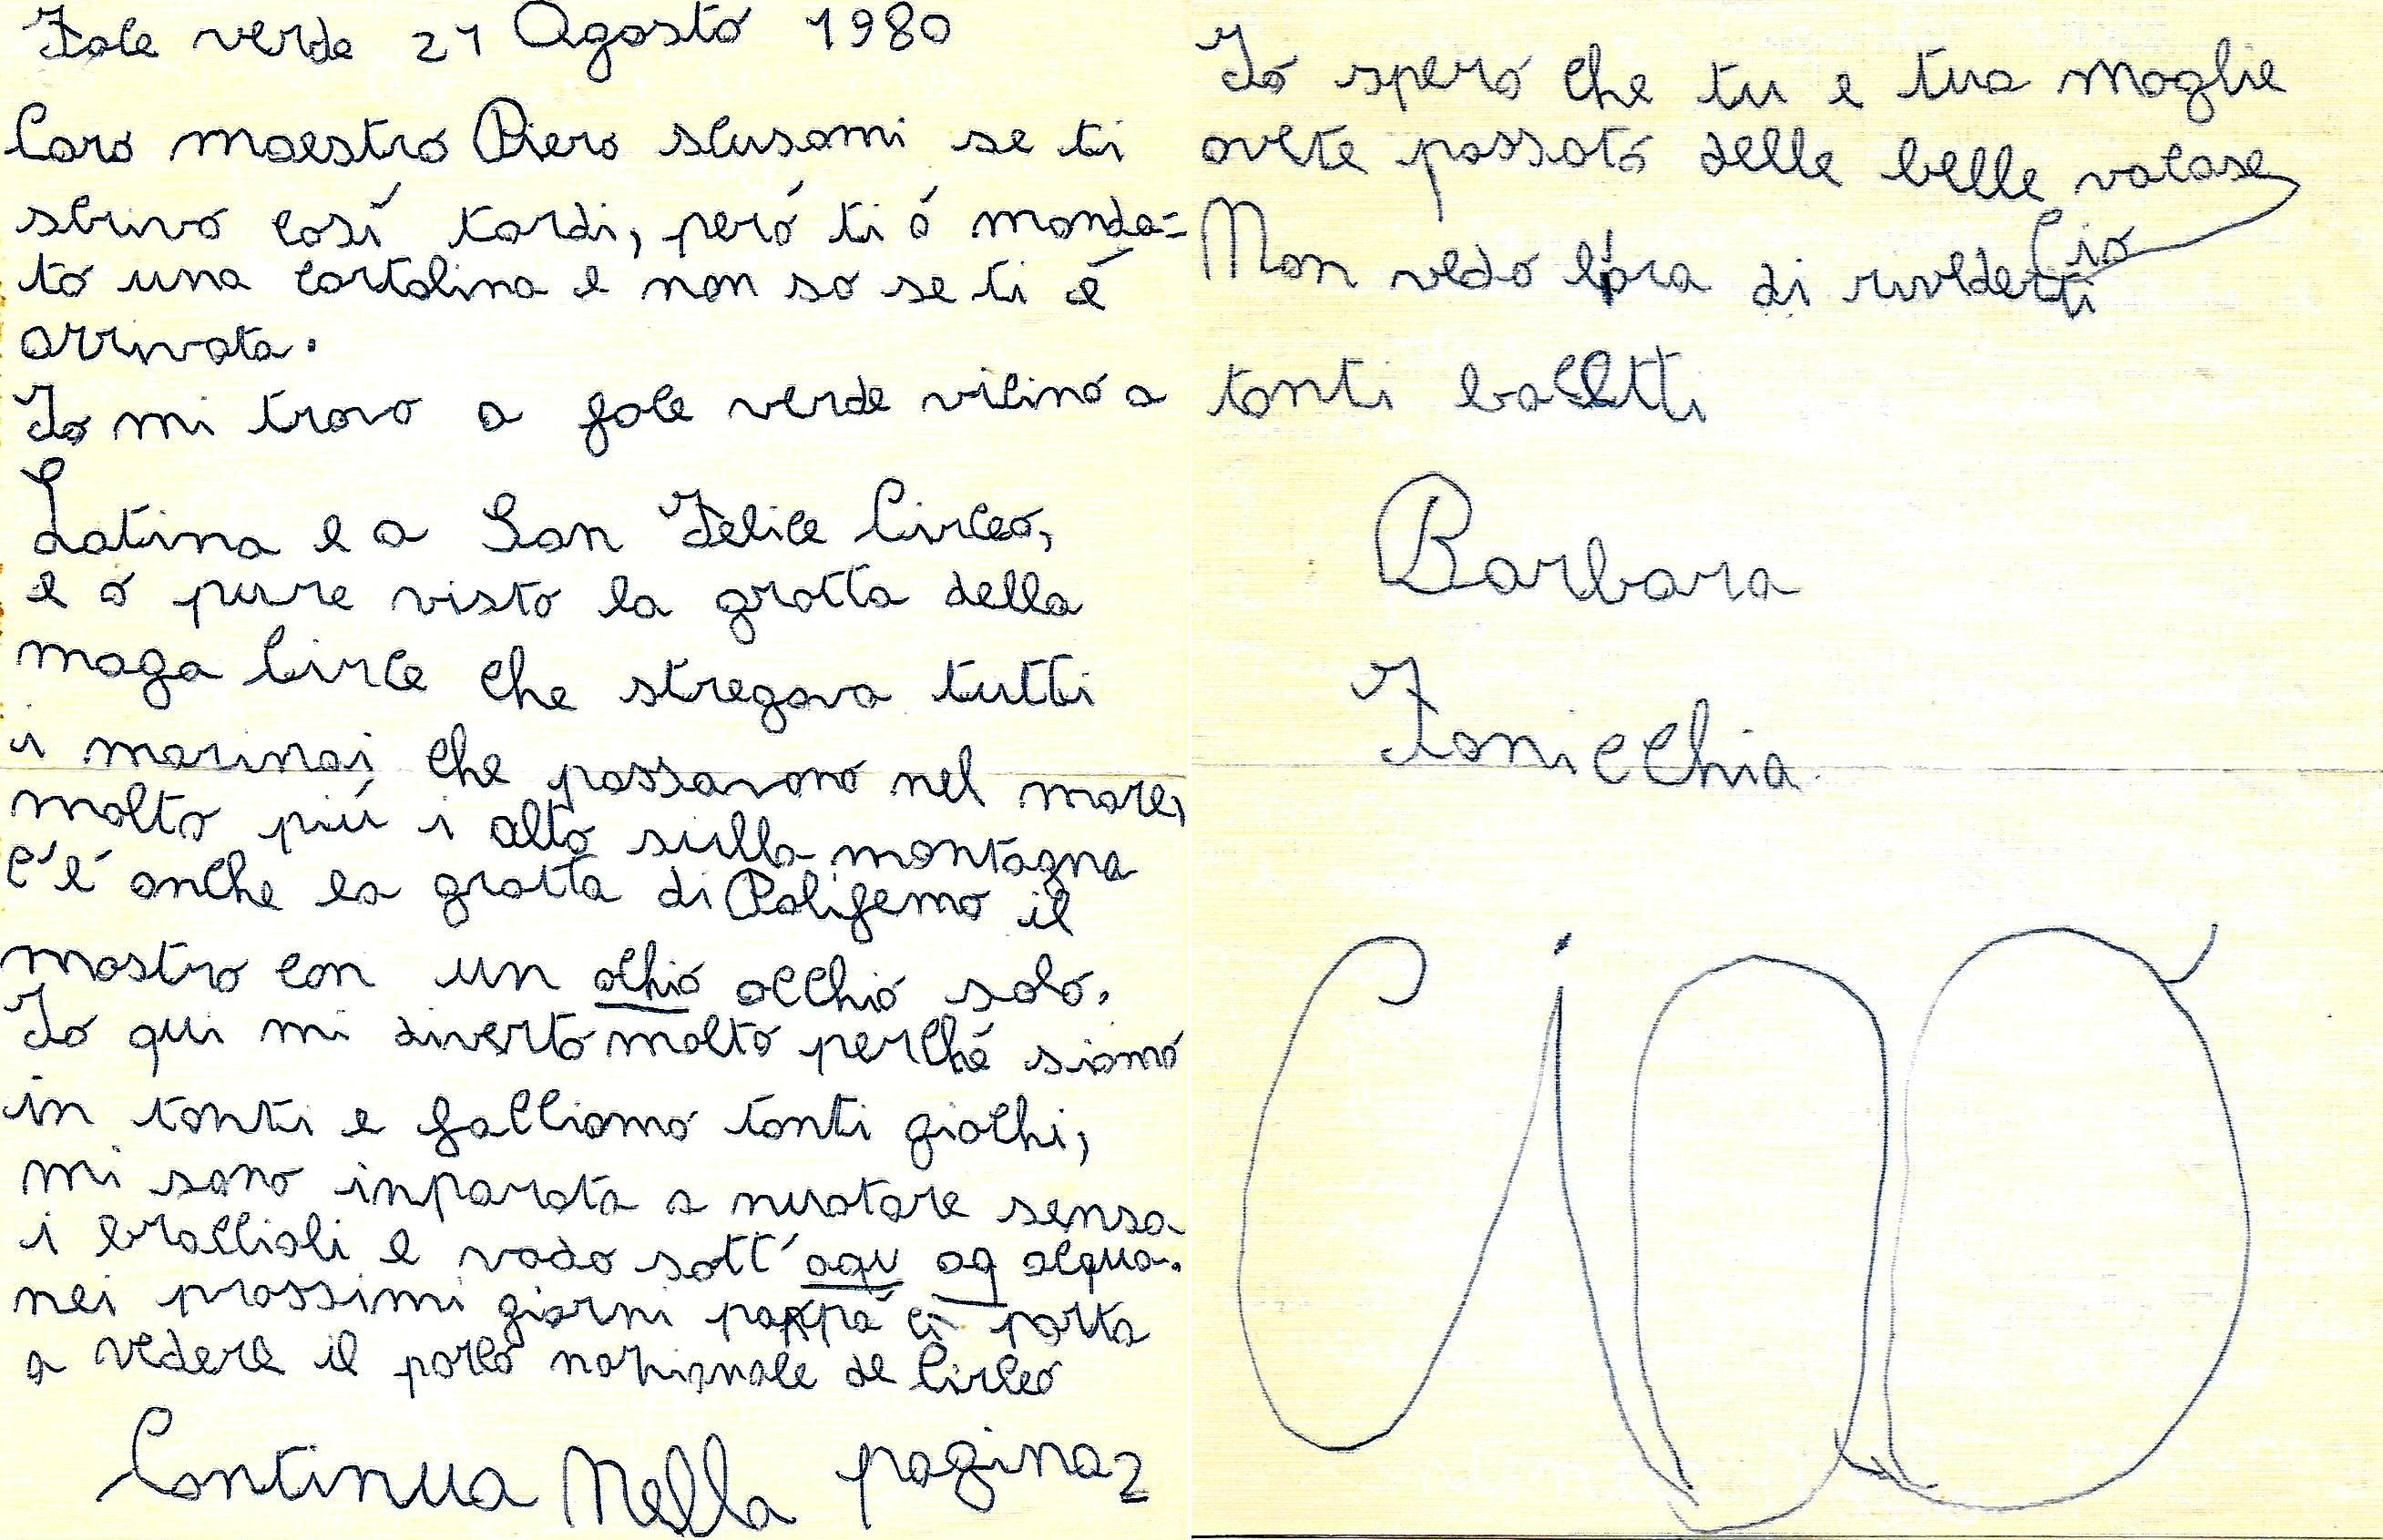 Foce verde 21 Agosto 1980
Caro maestro Piero scusami se ti
scrivo così tardi, peró ti ó manda=
to una cartolina e non so se ti é
arrivata.
Io mi trovo a foce verde vicino a
Latina e a San Felice Circeo,
e o pure visto la grotta della
maga Circe che stregava tutti
i marinai che passavano nel mare,
molto piú i alto sulla montagna
c'é anche la grotta di Polifemo il
mostro con un ochio occhio solo.
Io qui mi diverto molto perché siamo
in tanti e facciamo tanti giochi,
mi sono inparata a nuotare sensa
i braccioli e vado sott'aqu aq acqua.
nei prossimi giorni pappá ci porta
a vedere il parco nazionale de Circeo
Continua Nella pagina 2
Io spero che tu e tua moglie
avete passato delle belle vacase
Non vedo l'ora di rivederti
Cio
tanti bacetti
Barbara
Fonicchia
ciao